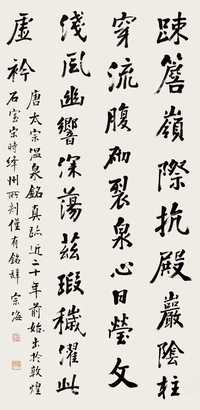 疎簷嶺際抗殿巖陰柱
穿流腹砌裂泉心日瑩文
淺風幽響深蕩茲瑕穢濯此
虛衿
唐太宗溫泉銘真跡近二十年前始出於敦煌
石室宋時絳州所刻僅有銘辭 宗海